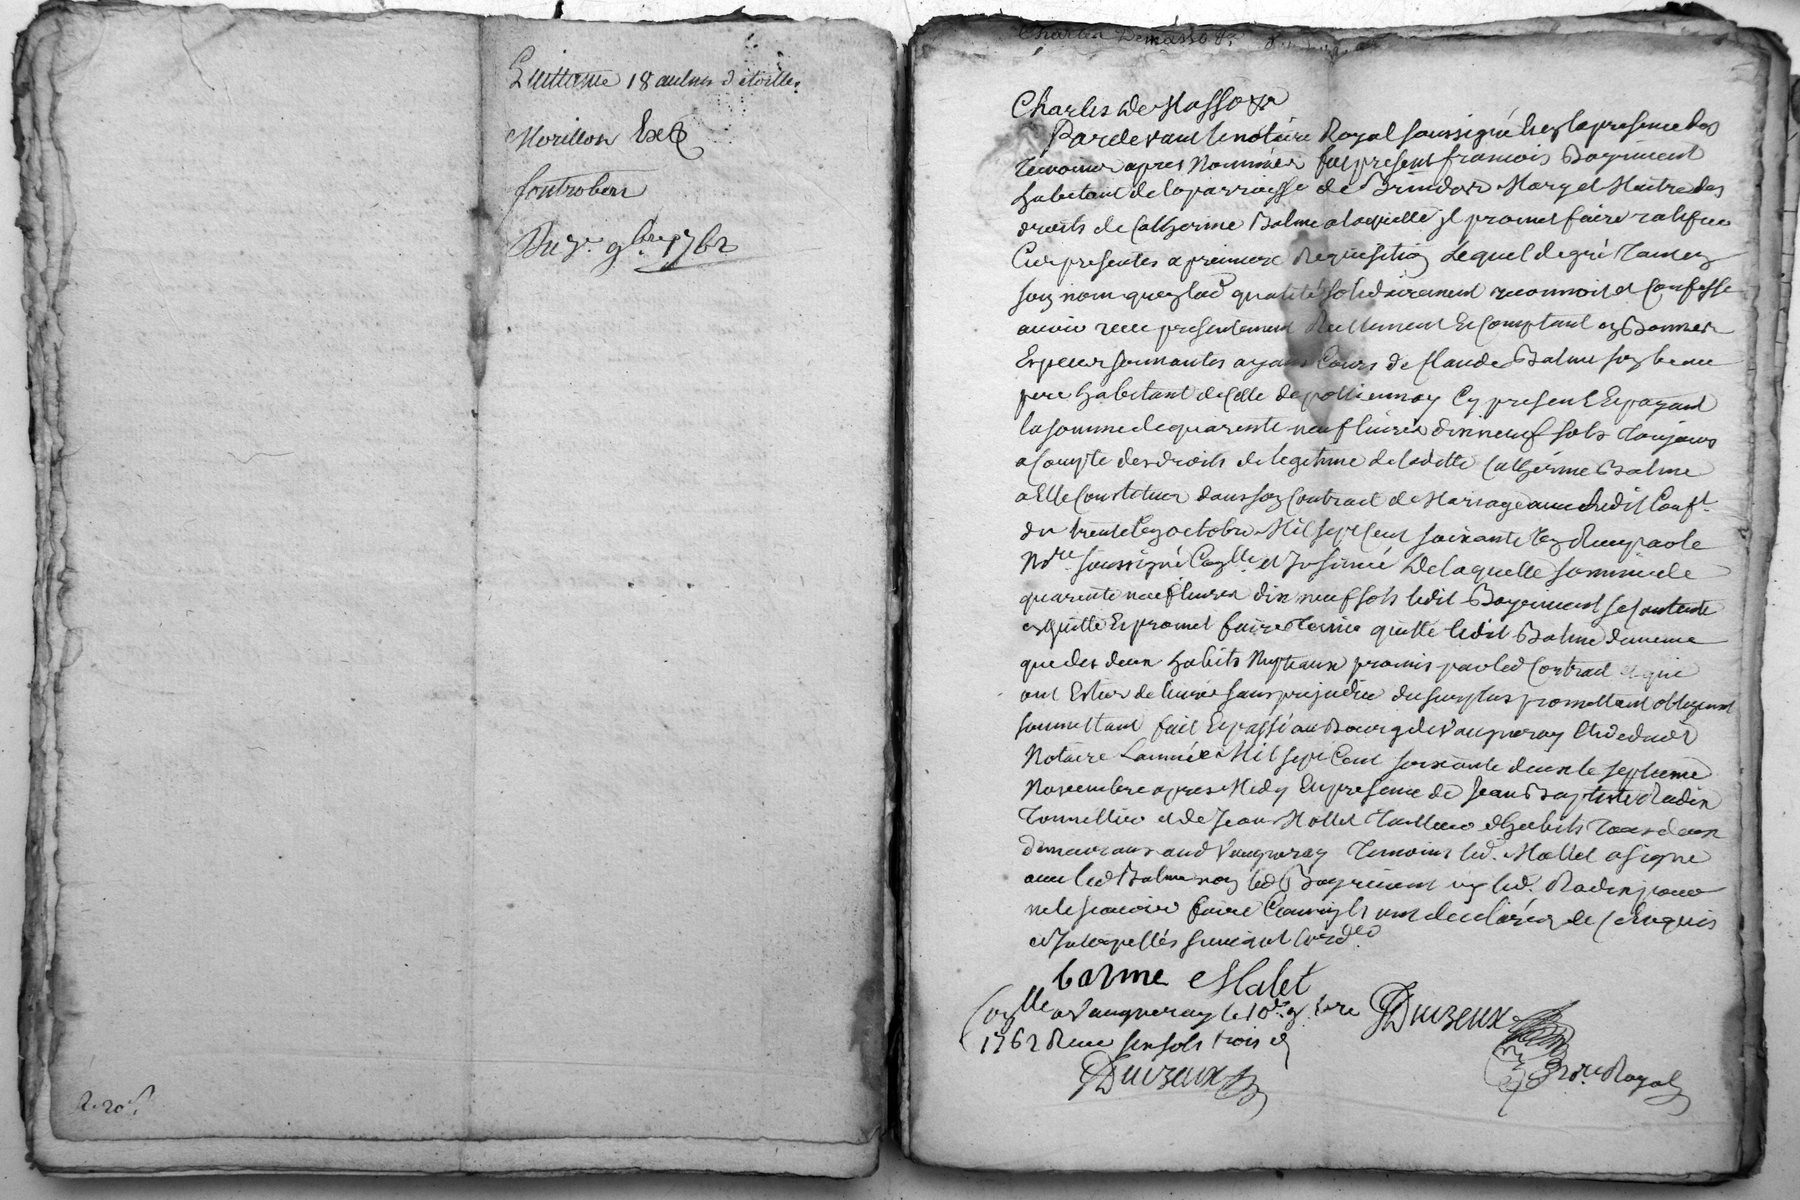 Quittance 18 aulnes d'étoilles
Morillon Ex
fontrobert
Du 7e 9bre 1762
R. 20s
Charles Demasso
Charles De Masso
Pardevant le notaire Royal soussigné Et en la presence des
temoins apres Nommés fut present francois Bayriment
habitant de la parroisse de Brindas Mary et Maitre des
droits de Catherine Balme a laquelle jl promet faire ratifier
Ces presentes a premiere Requisition Lequel de gré tant en
son nom quen lad qualité solidairement reconnoit et Confesse
avoir receu presentement Reellement Et Comptant en Bonnes
Especes sonnantes ayant Cours de Claude Balme son beau
pere habitant de Celle de pollionnay Cy present Et payant
la somme de quarente neuf livres dix neuf sols toujours
a Compte des droits de legitime de laditte Catherine Balme
a Elle Constituer dans son Contract de Mariage avec ledit Conft
du trente Un octobre Mil sept Cent soixante Un Recu par le
Ndre soussigné Conllé et Insinué De laquelle somme de
quarente neuf livres dix neuf sols ledit Bayriment se Contente
en quitte Et promet faire tenir quitte ledit Balme de meme
que des deux habits Nuptiaux promis par led Contract et qui
ont Estées delivrée sans prejudice du surplus promettant obligeant
soumettant fait Et passé au Bourg de Vaugneray Etude dudt
Notaire Lannée Mil sept Cent soixante deux le septieme
Novembre apres Midy En presence de Jean Baptiste Radix
Tonnellier et de Jean Mollet Tailleur d'habits tous deux
demeurans aud Vaugneray temoins led. Mollet a signé
avec led Balme non led Bayriment ny led. Radix pour
ne le scavoir faire Comm ils ont declarés de Ce Enquis
et Interpellés suivant lordce
barme Malet
Conllé a Vaugneray le 10e 9bre
1762 Receu six sols trois d
Duizeux
Duizeux
Ndre Royal